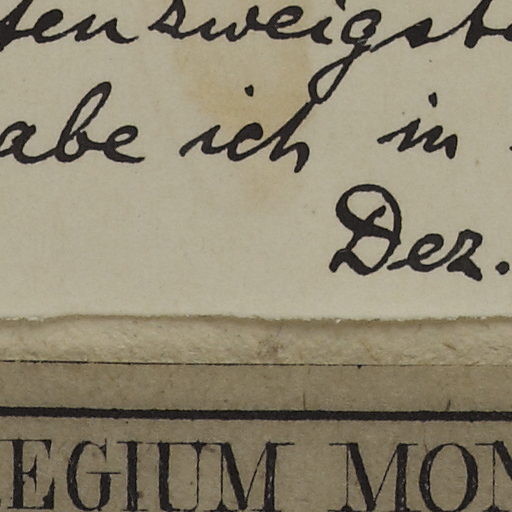 ten zweigst
abe ich in
Dez.
EGIUM MON